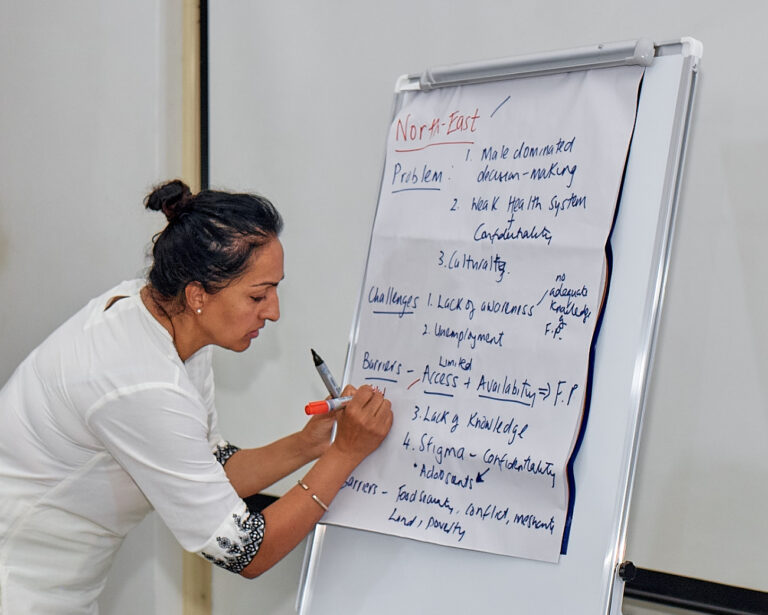 North-East
Problem: 1. Male dominated
decision-making
2. Weak Health System
+
Confidentiality
3. Culturally.
Challenges 1. Lack of awareness
no
adequate
knowledge
F.P.
2. Unemployment
Limited
Barriers - Access + Availability => F.P
3. Lack of Knowledge
4. Stigma - Confidentiality
Barriers - Food security, conflict,
Land, poverty